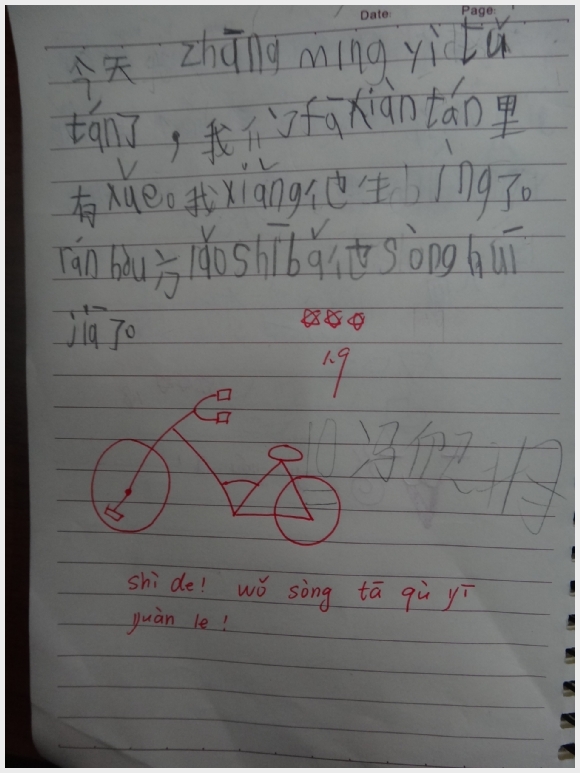 Date: Page:
今天 zhāng míng yì tǔ
tán了，我们fā xiàn tán里
有xuě。我xiǎng他生bìng了。
rán hòu 方lǎo shī bǎ他sòng huí
jiā了。
1.9
shì de! wǒ sòng tā qù yī
yuàn le!